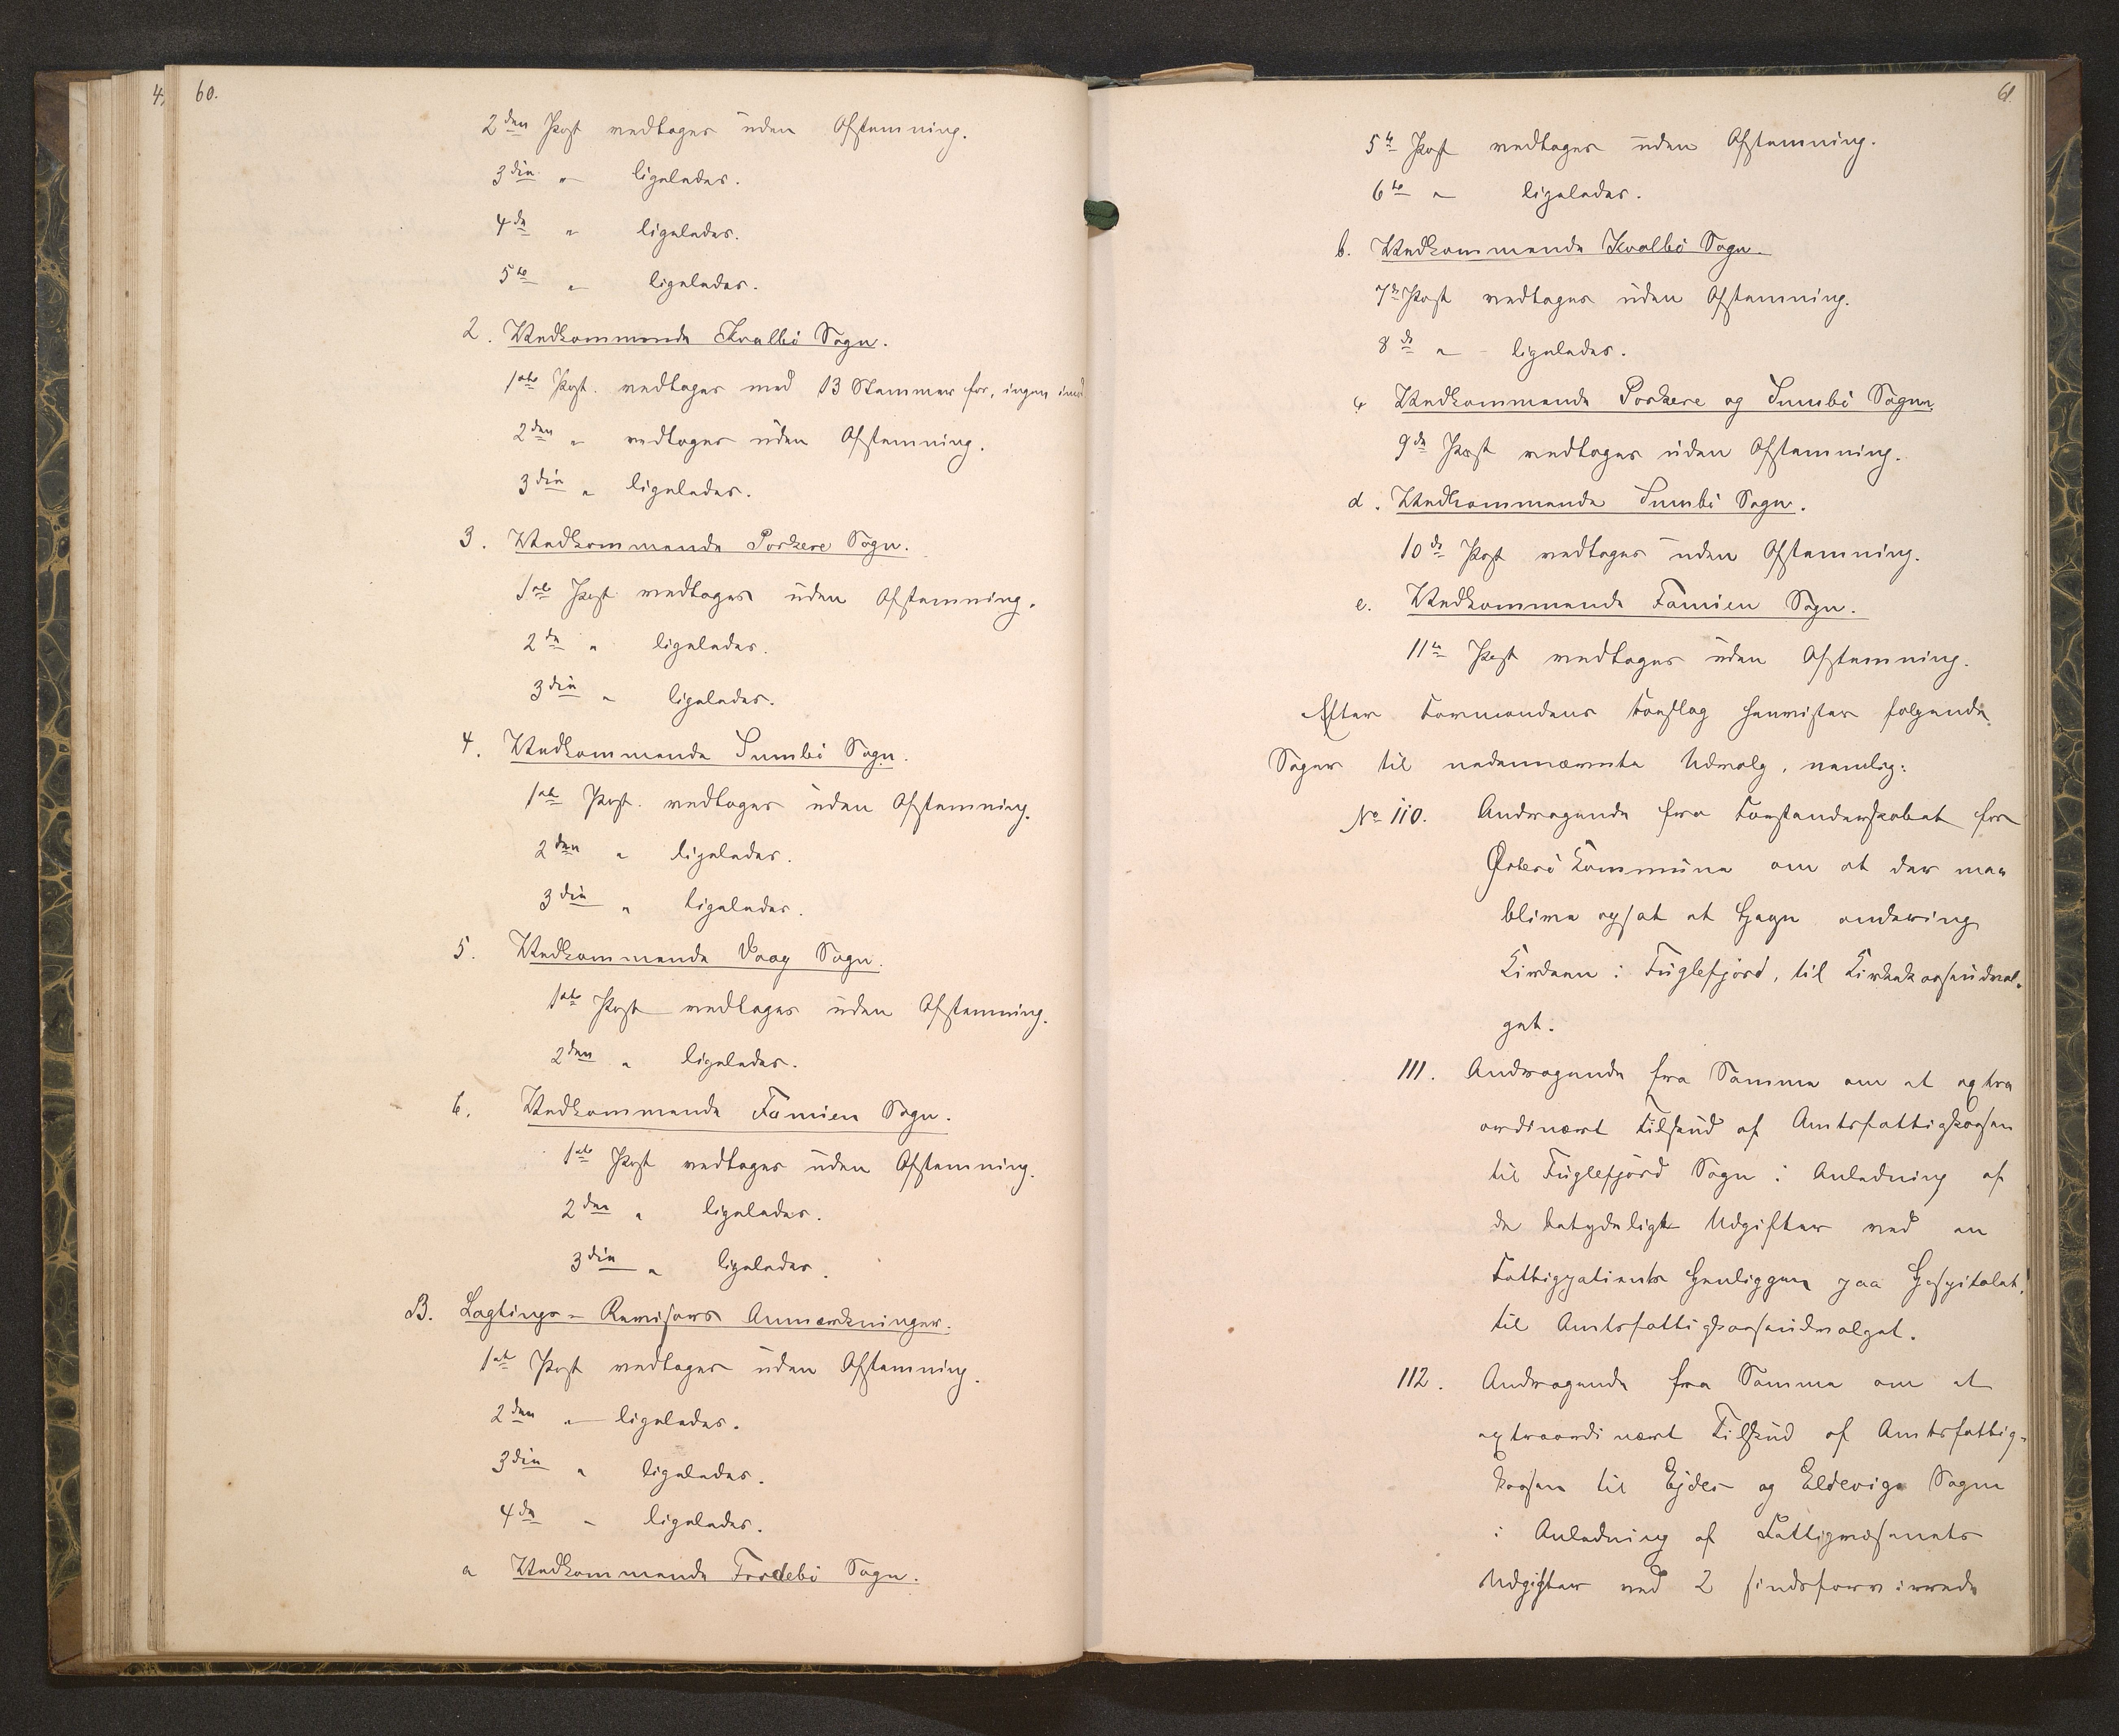 60.
2den Post vedtages uden Afstemning.
3die " ligeledes.
4de " ligeledes.
5te " ligeledes.
2. Vedkommende Kvalbø Sogn.
1ste Post. vedtages med 13 Stemmer for, ingen imod
2den " vedtages uden Afstemning.
3die " ligeledes.
3. Vedkommende Porkere Sogn.
1ste Post vedtages uden Afstemning.
2den " ligeledes.
3die " ligeledes.
4. Vedkommende Sumbø Sogn.
1ste Post. vedtages uden Afstemning.
2den " ligeledes.
3die " ligeledes.
5. Vedkommende Vaag Sogn.
1ste Post vedtages uden Afstemning.
2den " ligeledes.
6. Vedkommende Famien Sogn.
1ste Post vedtages uden Afstemning.
2den " ligeledes.
3die " ligeledes.
B. Lagtings-Revisors Anmærkninger.
1ste Post vedtages uden Afstemning.
2den " ligeledes.
3die " ligeledes.
4de " ligeledes.
a Vedkommende Frodebø Sogn.
61.
5te Post vedtages uden Afstemning.
6te " ligeledes.
b. Vedkommende Kvalbø Sogn.
7de Post vedtages uden Afstemning.
8de " ligeledes.
c Vedkommende Porkere og Sumbø Sogne.
9de Post vedtages uden Afstemning.
d. Vedkommende Sumbø Sogn.
10de Post vedtages uden Afstemning.
e. Vedkommende Famien Sogn.
11te Post vedtages uden Afstemning.
Efter Formandens Forslag henvistes følgende
Sager til nedennævnte Udvalg, nemlig:
No 110. Andragende fra Forstanderskabet for
Østerø Kommune om at der maa
blive opsat et Hegn omkring
Kirken i Fuglefjord, til Kirkekasseudval-
get.
111. Andragende fra Samme om et extra
ordinært Tilskud af Amtsfattigkassen
til Fuglefjord Sogn i Anledning af
de betydeligte Udgifter ved en
Fattigpatients Henliggen paa Hospitalet,
til Amtsfattigkasseudvalget.
112. Andragende fra Samme om et
extraordinært Tilskud af Amtsfattig-
kassen til Ejdes og Eldevigs Sogne
i Anledning af Fattigvæsenets
Udgifter ved 2 sindsforvirrede